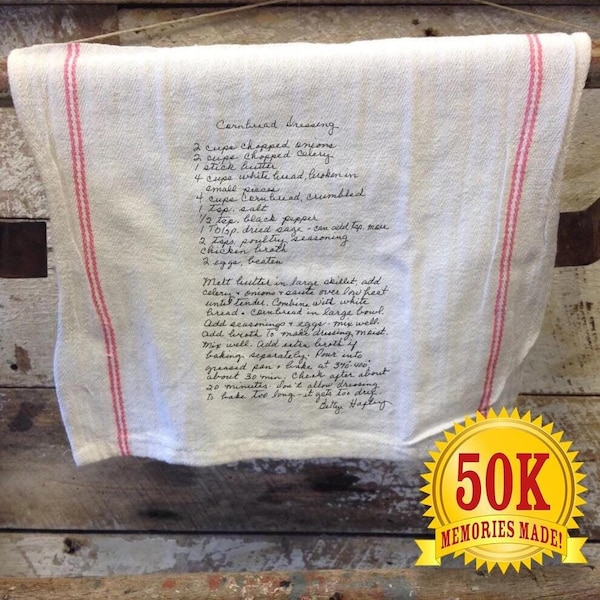 Cornbread Dressing
2 cups chopped onions
2 cups chopped celery
1 stick butter
4 cups white bread, broken in
small pieces
4 cups cornbread, crumbled
1 tsp. salt
1/2 tsp. black pepper
1 Tbsp. dried sage - can add tsp. more
2 tsps. poultry seasoning
chicken broth
2 eggs, beaten
Melt butter in large skillet, add
celery & onions & saute over low heat
until tender. Combine with white
bread & cornbread in large bowl.
Add seasonings & eggs - mix well.
Add broth to make dressing moist.
Mix well. Add extra broth if
baking separately. Pour into
greased pan & bake at
about 30 min. Check after about
20 minutes. Don't allow dressing
to bake too long - it gets too dry.
Betty
50K
MEMORIES MADE!